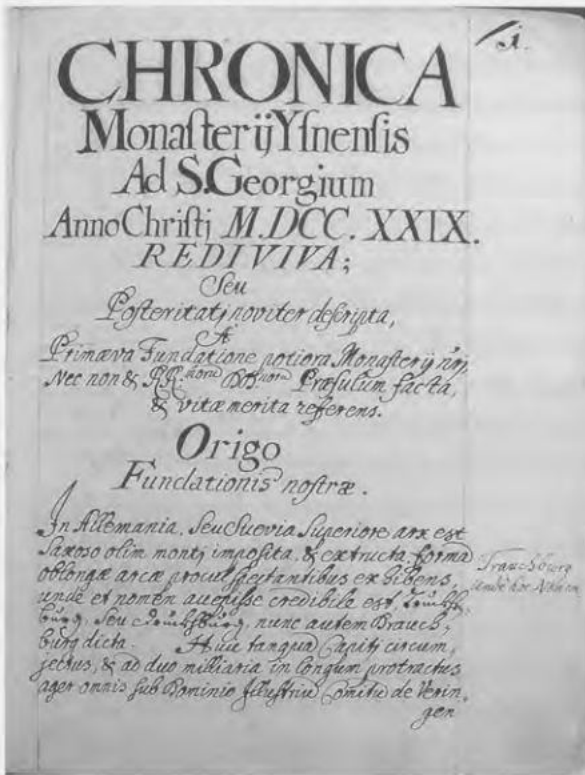 1.
CHRONICA
Monaſterij Yſnenſis
Ad S. Georgium
Anno Chriſti M.DCC.XXIX.
REDIVIVA;
Seu
Poſteritati noviter deſcripta,
A
Primæva Fundatione potiora Monaſterij nri,
Nec non & RR. Præſulum facta,
& vitæ merita referens.
Origo
Fundationis noſtræ.
In Allemania, ſeu Suevia Superiore arx est
ſaxoso olim monti imposita, & extructa, forma
oblongæ arcæ procul ſpectantibus exhibens,
unde et nomen accepiſſe credibile est
burg, ſeu nunc autem Drauch,
burg dicta. Huic tanquã Capiti circum,
jectus, & ad duo milliaria in longum protractus
ager omnis ſub Dominio Illuſtriũ Comitũ de Verin,
gen
Trauchburg
unde hoc Nomen